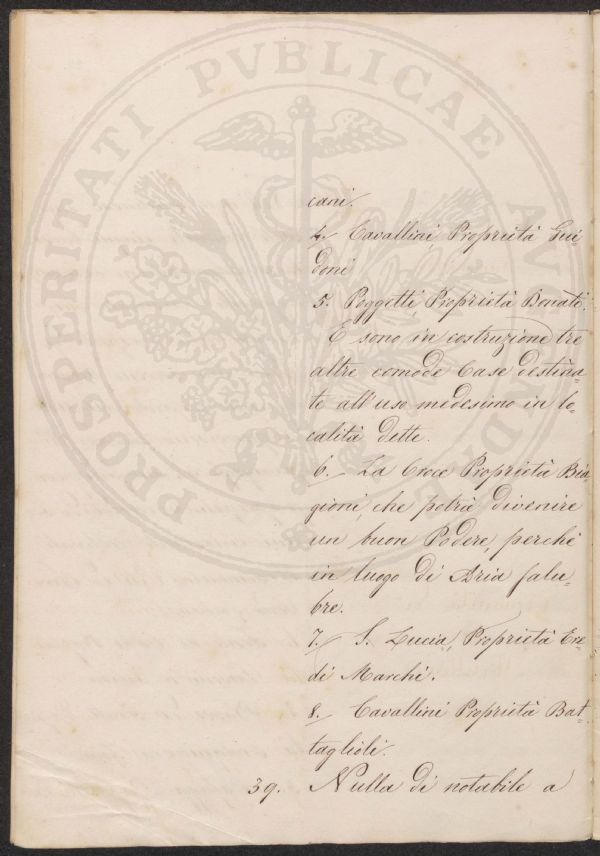 PROSPERITATI PVBLICAE AVGENDAE
cani.
4. Cavallini, Proprietà Gui-
doni
5. Poggetti, Proprietà Bonati.
E sono in costruzione tre
altre comode Case destina-
te all'uso medesimo in lo-
calità dette.
6. La Croce Proprietà Bia
gioni, che potrà divenire
un buon Podere, perché
in luogo di Aria salu-
bre.
7. S. Lucia, Proprietà Ere
di Marchi.
8. Cavallini Proprietà Bat-
taglioli.
39. Nulla di notabile a